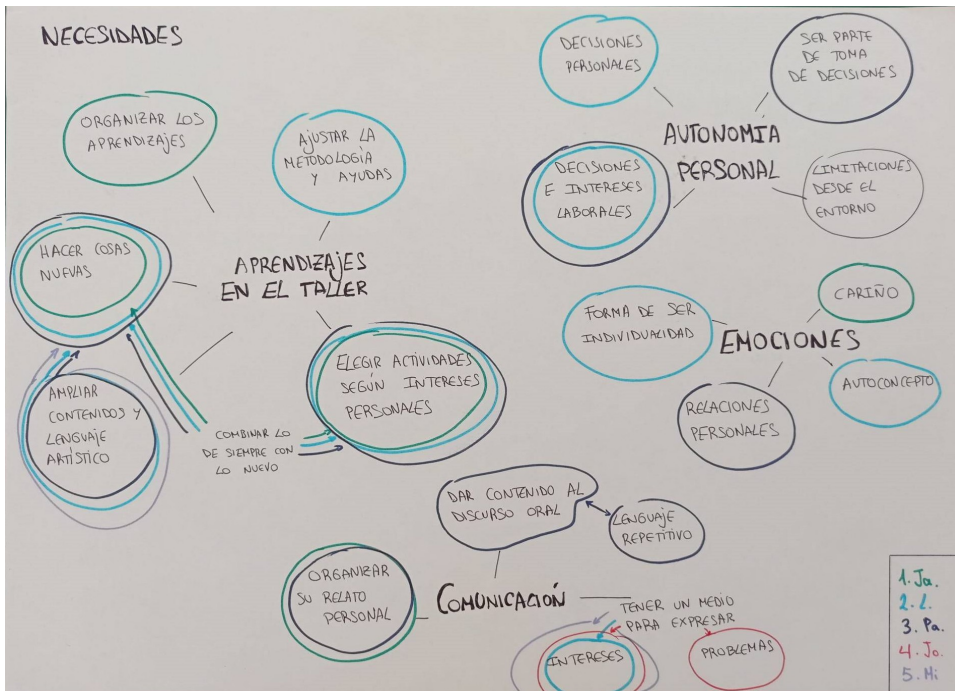 NECESIDADES
ORGANIZAR LOS
APRENDIZAJES
AJUSTAR LA
METODOLOGÍA
Y AYUDAS
HACER COSAS
NUEVAS
APRENDIZAJES
EN EL TALLER
AMPLIAR
CONTENIDOS Y
LENGUAJE
ARTÍSTICO
COMBINAR LO
DE SIEMPRE CON
LO NUEVO
ELEGIR ACTIVIDADES
SEGÚN INTERESES
PERSONALES
DECISIONES
PERSONALES
SER PARTE
DE TOMA
DE DECISIONES
AUTONOMIA
PERSONAL
DECISIONES
E INTERESES
LABORALES
LIMITACIONES
DESDE EL
ENTORNO
FORMA DE SER
INDIVIDUALIDAD
CARIÑO
EMOCIONES
RELACIONES
PERSONALES
AUTOCONCEPTO
DAR CONTENIDO AL
DISCURSO ORAL
LENGUAJE
REPETITIVO
ORGANIZAR
SU RELATO
PERSONAL
COMUNICACIÓN
TENER UN MEDIO
PARA EXPRESAR
INTERESES
PROBLEMAS
1. Ja.
2. L.
3. Pa.
4. Jo.
5. Mi